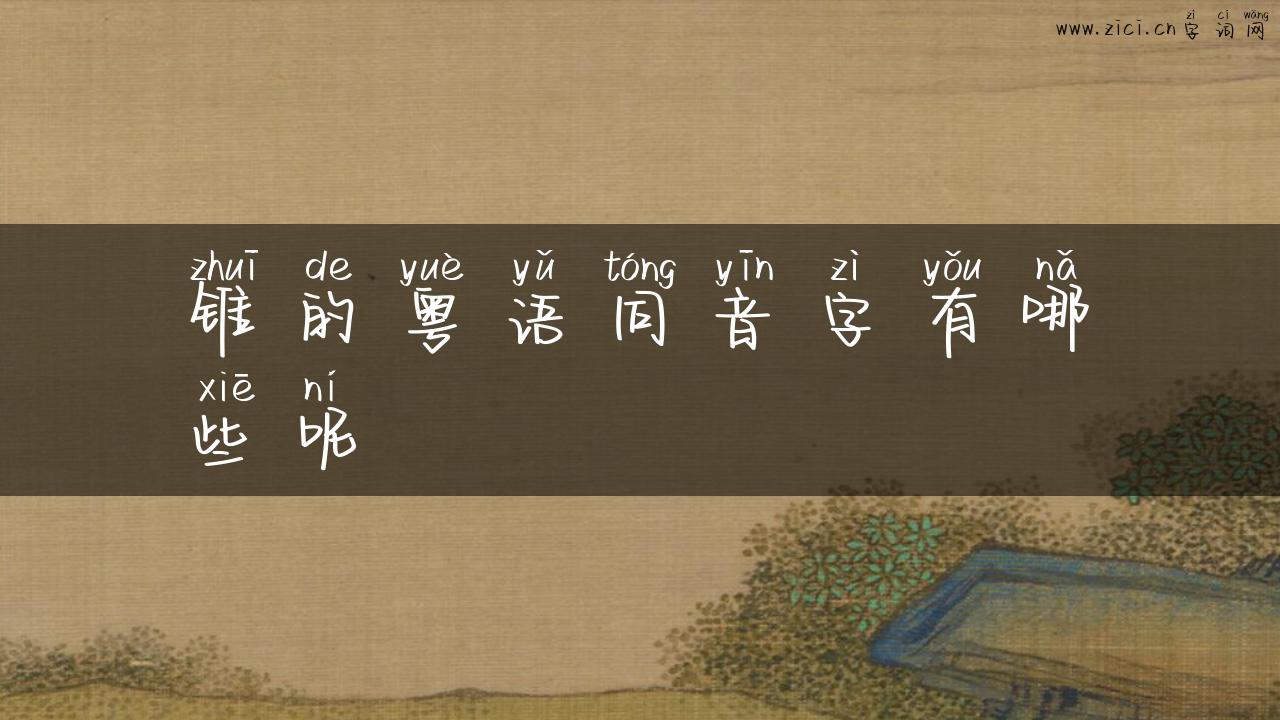 zì cí wǎng
www.zici.cn 字词网
zhuī de yuè yǔ tóng yīn zì yǒu nǎ
锥的粤语同音字有哪
xiē ní
些呢